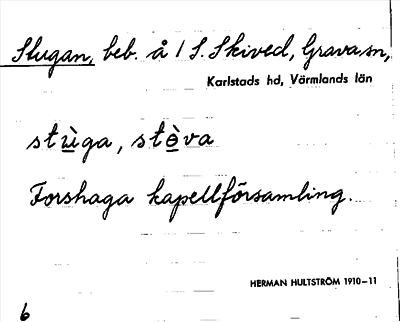 Slugan, beb. å 1 S. Skived, Grava sn,
Karlstads hd, Värmlands län
stù̲ga, stè̲va
Forshaga kapellförsamling.
HERMAN HULTSTRÖM 1910–11
6